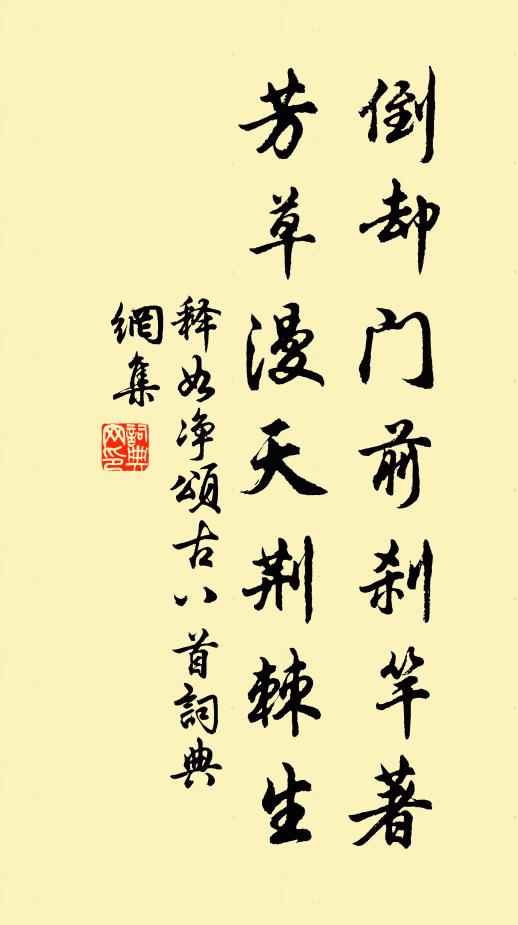 倒却門前刹竿著
芳草漫天荆棘生
释如净頌古八首詞典
網集
詞典
网印